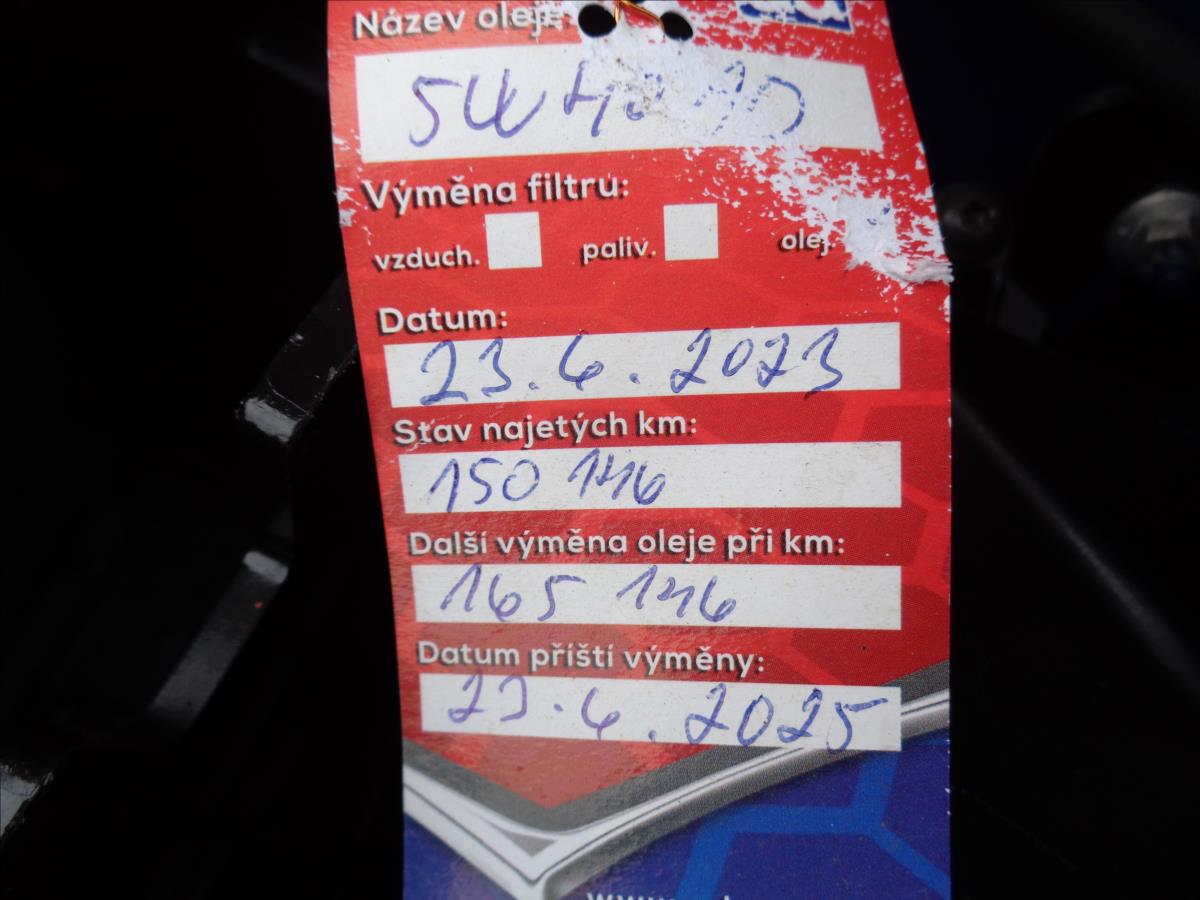 Název oleje:
5W40
Výměna filtru:
vzduch. paliv. olej.
Datum:
23.6.2023
Stav najetých km:
150 146
Další výměna oleje při km:
165 146
Datum příští výměny:
23.6.2025